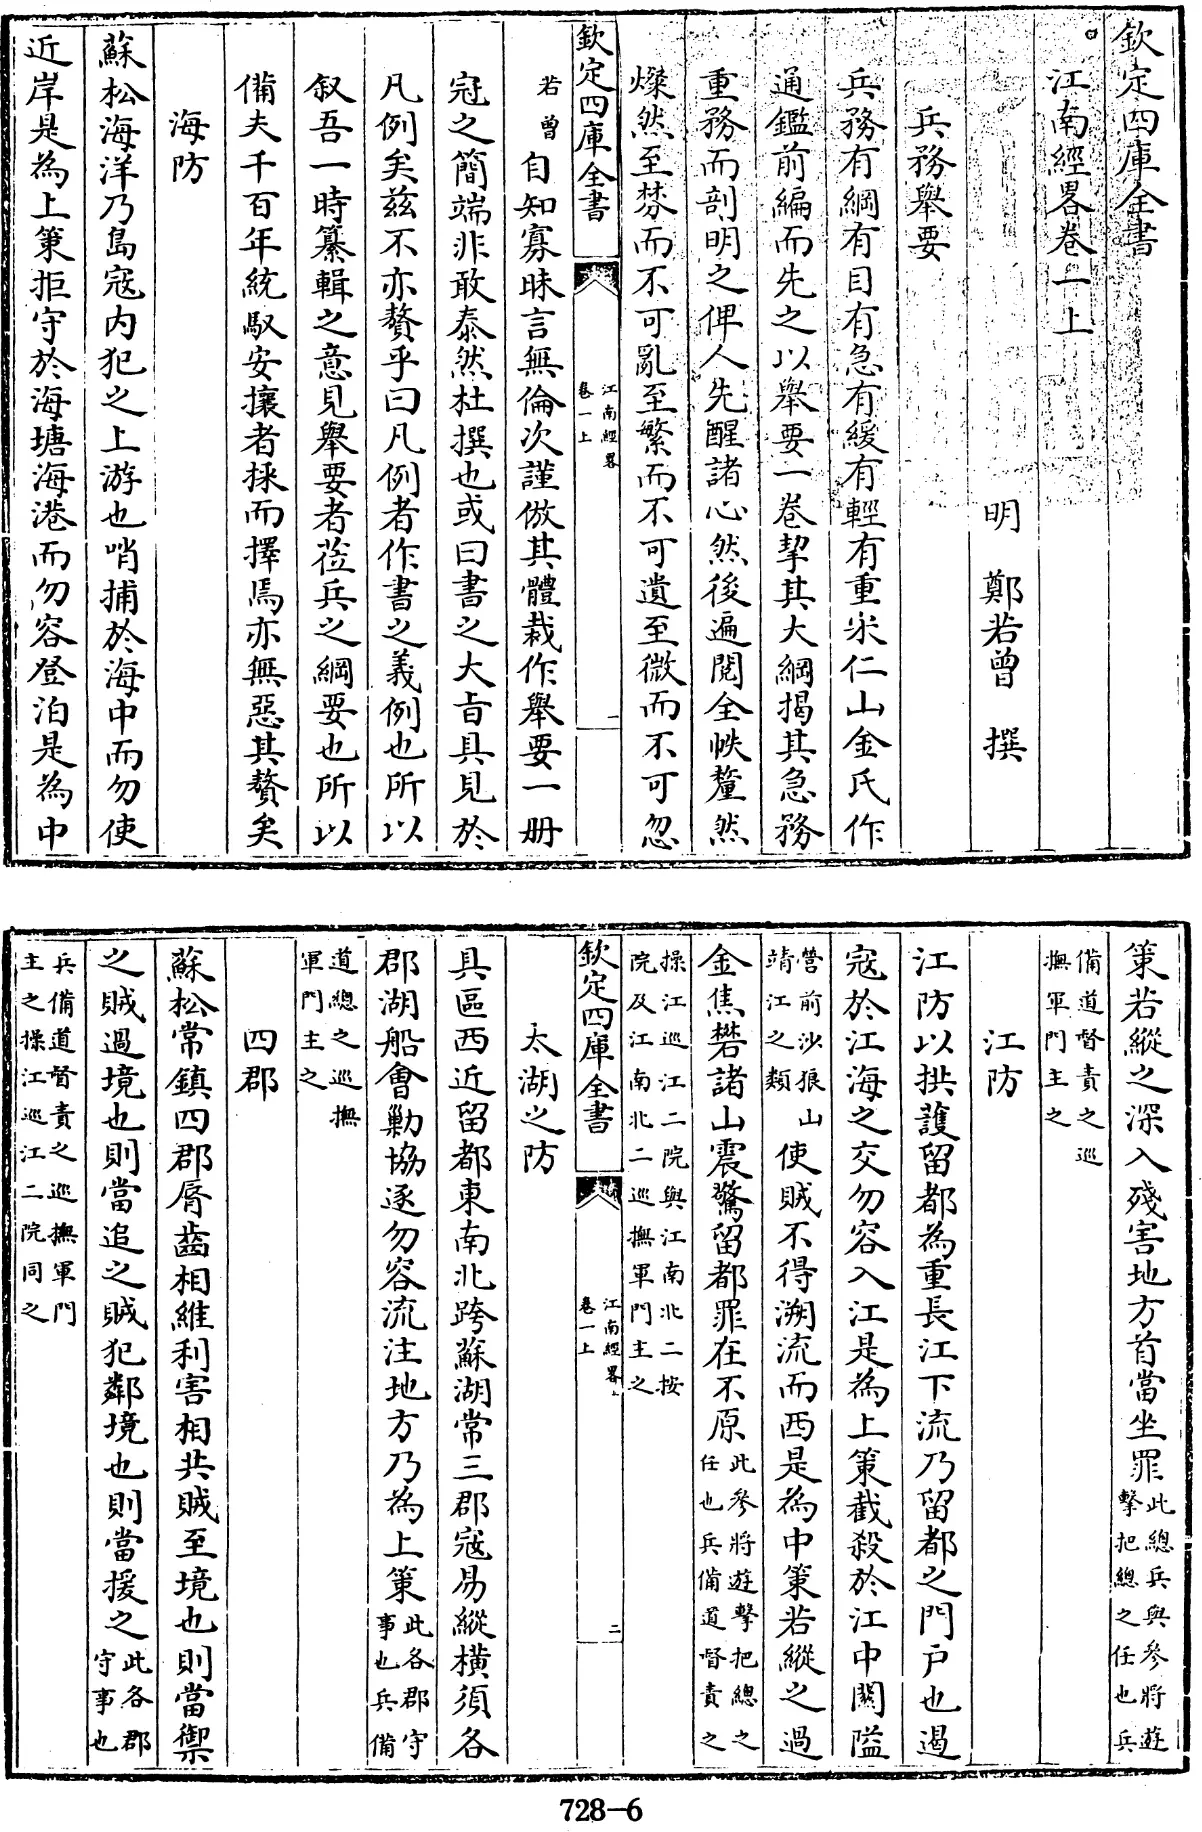 欽定四庫全書
江南經畧卷一上
明 鄭若曾 撰
兵務舉要
兵務有綱有目有急有緩有輕有重宋仁山金氏作
通鑑前編而先之以舉要一卷挈其大綱揭其急務
重務而剖明之俾人先醒諸心然後遍閱全帙釐然
燦然至棼而不可亂至繁而不可遺至微而不可忽
欽定四庫全書
江南經畧
卷一上
一
若曾自知寡昧言無倫次謹倣其體裁作舉要一册
冠之簡端非敢泰然杜撰也或曰書之大旨具見於
凡例矣兹不亦贅乎曰凡例者作書之義例也所以
叙吾一時纂輯之意見舉要者蒞兵之綱要也所以
備夫千百年統馭安攘者採而擇焉亦無惡其贅矣
海防
蘇松海洋乃島寇内犯之上游也哨捕於海中而勿使
近岸是為上策拒守於海塘海港而勿容登泊是為中
策若縱之深入殘害地方首當坐罪此總兵與參將遊
擊把總之任也兵
備道督責之巡
撫軍門主之
江防
江防以拱護留都為重長江下流乃留都之門戸也遏
寇於江海之交勿容入江是為上策截殺於江中闗隘
營前沙狼山
靖江之類使賊不得溯流而西是為中策若縱之過
金焦礬諸山震驚留都罪在不原此參將遊擊把總之
任也兵備道督責之
操江巡江二院與江南北二按
院及江南北二巡撫軍門主之
欽定四庫全書
江南經畧
卷一上
二
太湖之防
具區西近留都東南北跨蘇湖常三郡寇易縱橫須各
郡湖船會勦協逐勿容流注地方乃為上策此各郡守
事也兵備
道總之巡撫
軍門主之
四郡
蘇松常鎮四郡脣齒相維利害相共賊至境也則當禦
之賊過境也則當追之賊犯鄰境也則當援之此各郡
守事也
兵備道督責之巡撫軍門
主之操江巡江二院同之
728-6